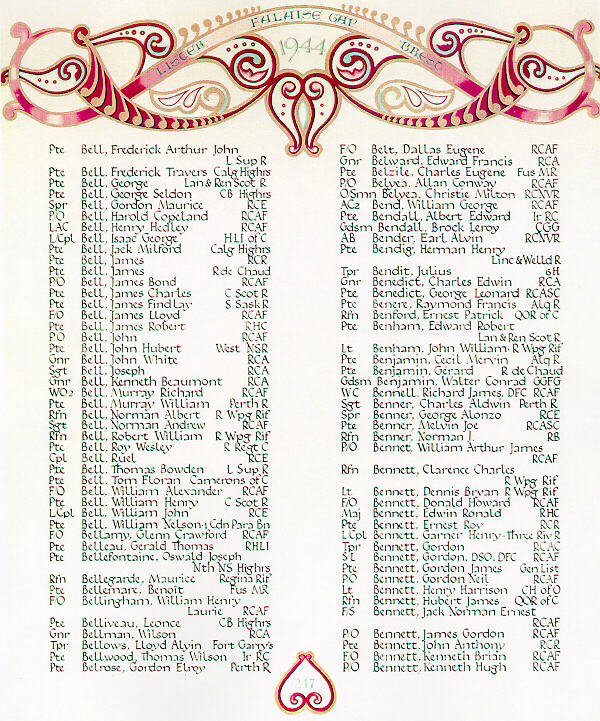 LISIEUX FALAISE GAP BREST
1944
Pte Bell, Frederick Arthur John
L Sup R
Pte Bell, Frederick Travers Calg Highrs
Pte Bell, George Lan & Ren Scot R
Pte Bell, George Seldon CB Highrs
Spr Bell, Gordon Maurice RCE
P/O Bell, Harold Copeland RCAF
LAC Bell, Henry Hedley RCAF
L/Cpl Bell, Isaac George HLI of C
Pte Bell, Jack Milford Calg Highrs
Pte Bell, James RCR
Pte Bell, James R de Chaud
P/O Bell, James Bond RCAF
Pte Bell, James Charles C Scot R
Pte Bell, James Findlay S Sask R
F/O Bell, James Lloyd RCAF
Pte Bell, James Robert RHC
P/O Bell, John RCAF
Pte Bell, John Hubert West NSR
Gnr Bell, John White RCA
Sgt Bell, Joseph RCA
Gnr Bell, Kenneth Beaumont RCA
WO2 Bell, Murray Richard RCAF
Pte Bell, Murray William Perth R
Rfn Bell, Norman Albert R Wpg Rif
Sgt Bell, Norman Andrew RCAF
Rfn Bell, Robert William R Wpg Rif
Pte Bell, Roy Wesley R Regt C
Cpl Bell, Ruel RCE
Pte Bell, Thomas Bowden L Sup R
Pte Bell, Tom Floran Camerons of C
F/O Bell, William Alexander RCAF
Pte Bell, William Henry C Scot R
L/Cpl Bell, William John RCE
Pte Bell, William Nelson · 1 Cdn Para Bn
F/O Bellamy, Glenn Crawford RCAF
Pte Belleau, Gerald Thomas RHLI
Pte Bellefontaine, Oswald Joseph
Nth NS Highrs
Rfn Bellegarde, Maurice Regina Rif
Pte Bellemare, Benoit Fus MR
F/O Bellingham, William Henry
Laurie RCAF
Pte Belliveau, Leonce CB Highrs
Gnr Bellman, Wilson RCA
Tpr Bellows, Lloyd Alvin Fort Garry's
Pte Bellwood, Thomas Wilson Ir RC
Pte Belrose, Gordon Elroy Perth R
F/O Belt, Dallas Eugene RCAF
Gnr Belward, Edward Francis RCA
Pte Belzile, Charles Eugene Fus MR
P/O Belyea, Allan Conway RCAF
O/Smn Belyea, Christie Milton RCNVR
AC2 Bend, William George RCAF
Pte Bendall, Albert Edward Ir RC
Gdsm Bendall, Brock Leroy CGG
AB Bender, Earl Alvin RCNVR
Pte Bendig, Herman Henry
Linc & Welld R
Tpr Bendit, Julius 6H
Gnr Benedict, Charles Edwin RCA
Pte Benedict, George Leonard RCASC
Pte Benere, Raymond Francis Alq R
Rfn Benford, Ernest Patrick QOR of C
Pte Benham, Edward Robert
Lan & Ren Scot R
Lt Benham, John William · R Wpg Rif
Pte Benjamin, Cecil Mervin Alq R
Pte Benjamin, Gerard R de Chaud
Gdsm Benjamin, Walter Conrad GGFG
WC Bennell, Richard James, DFC RCAF
Sgt Benner, Charles Aldwin Perth R
Spr Benner, George Alonzo RCE
Pte Benner, Melvin Joe RCASC
Rfn Benner, Norman J. RB
P/O Bennet, William Arthur James
RCAF
Rfn Bennett, Clarence Charles
R Wpg Rif
Lt Bennett, Dennis Bryan R Wpg Rif
F/O Bennett, Donald Howard RCAF
Maj Bennett, Edwin Ronald RHC
Pte Bennett, Ernest Roy RCR
L/Cpl Bennett, Garner Henry · Three Riv R
Tpr Bennett, Gordon RCAC
S/L Bennett, Gordon, DSO, DFC RCAF
Pte Bennett, Gordon James Gen List
P/O Bennett, Gordon Neil RCAF
Lt Bennett, Henry Harrison CH of O
Rfn Bennett, Hubert James QOR of C
F/S Bennett, Jack Norman Ernest
RCAF
P/O Bennett, James Gordon RCAF
Pte Bennett, John Anthony RCR
F/O Bennett, Kenneth Brian RCAF
P/O Bennett, Kenneth Hugh RCAF
247